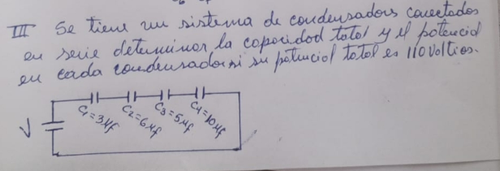 III Se tiene un sistema de condensadores conectados
en serie determinar la capacidad total y el potencial
en cada condensador si su potencial total es 110 voltios.
V C1=3Mf C2=6Mf C3=5Mf C4=10Mf